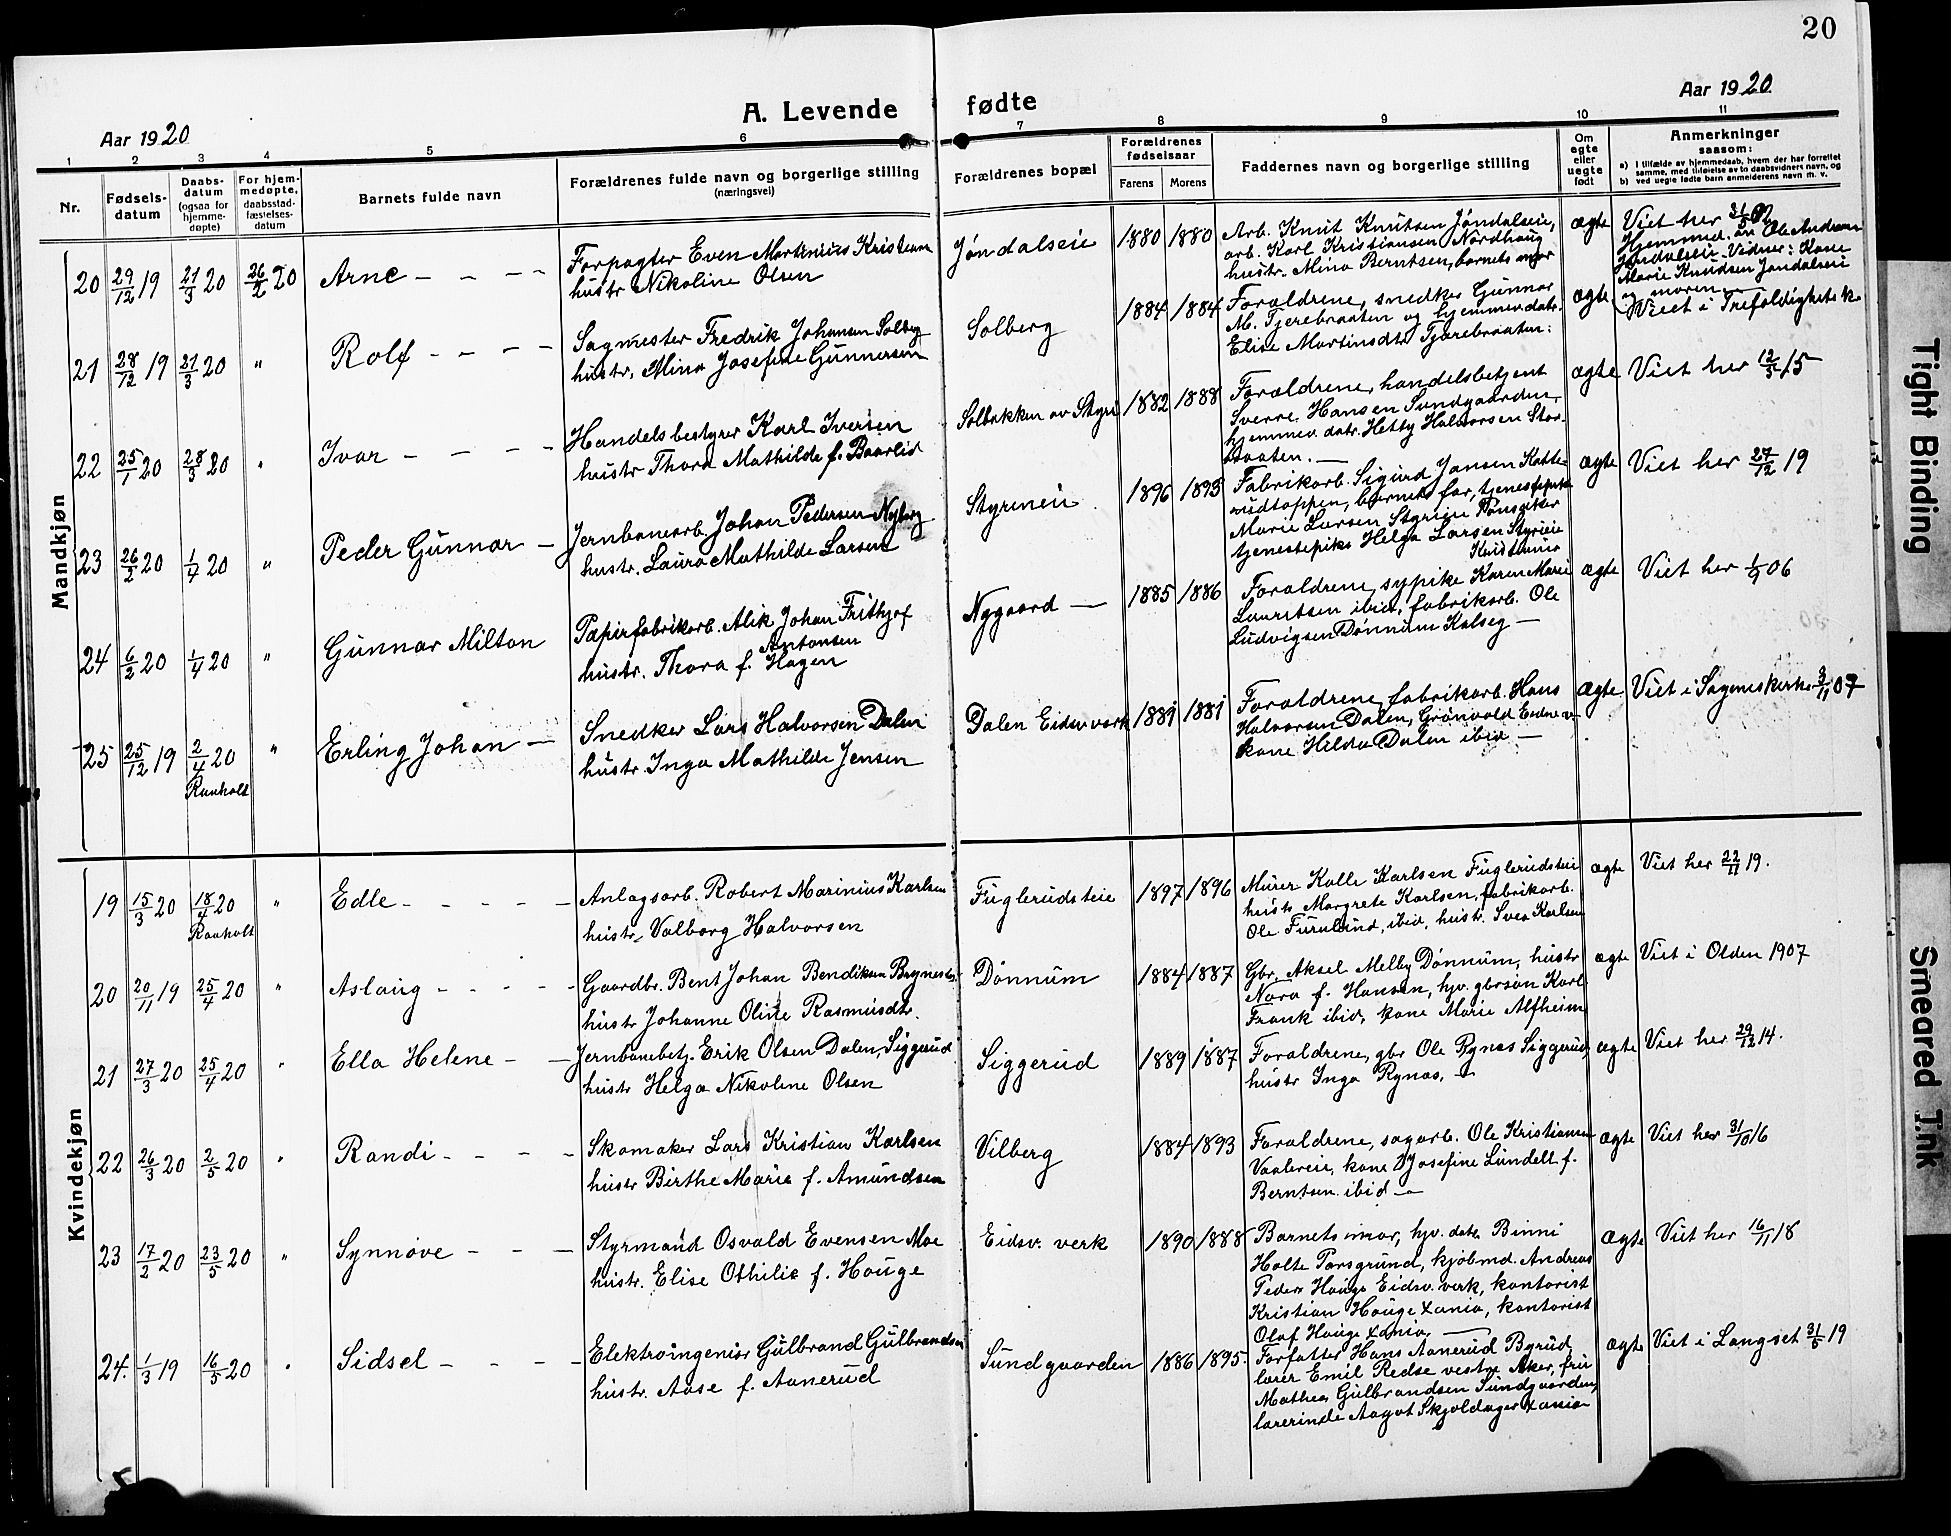 20
Aar 1920
A. Levende fødte
Aar 1920
1 2 3 4 5 6 7 8 9 10 11
Nr.
Fødsels-
datum
Daabs-
datum
(ogsaa for
hjemme-
døpte)
For hjem-
medøpte,
daabsstad-
fæstelses-
datum
Barnets fulde navn
Forældrenes fulde navn og borgerlige stilling
(næringsvei)
Forældrenes bopæl
Forældrenes
fødselsaar
Farens Morens
Faddernes navn og borgerlige stilling
Om
egte
eller
uegte
født
Anmerkninger
saasom:
a) I tilfælde av hjemmedaab, hvem der har forrettet
samme, med tilføielse av to daabsvidners navn, og
b) ved uegte fødte barn anmelderens navn m. v.
Mandkjøn
20 29/12 19 21/3 20 26/2 20 Arne
Forpagter Even Martinius Kristiansen
hustr Nikoline Olsen
Jøndalseie 1880 1880
Arb. Knut Knutsen Jøndalseie,
arb. Karl Kristiansen Nordhoug
hustr. Mina Berntsen, barnets mor
ægte
Viet her
Hjemmed. av Ole Andersen
Jøndalseie. Vidner: Kone
Marie Knudsen Jøndalseie
og moren
21 28/12 19 21/3 20 " Rolf
Sagmester Fredrik Johansen Solberg
hustr. Mina Josefine Gunnersen
Solberg 1884 1884
Forældrene, snedker Gunnar
M. Tjærebraaten og hjemmev. datr.
Elise Martinsdtr Tjærebraaten.
ægte
Viet i Trefoldighets k.
22 25/1 20 28/3 20 " Ivar
Handelsbestyrer Karl Iversen
hustr Thora Mathilde f. Baarlid
Solbakken av Styri 1882 1888
Forældrene, handelsbetjent
Sverre Hansen Sundgaarden,
hjemmev. datr. Hetty Halvorsen Stor-
braaten.
ægte
Viet her 12/3 15
23 26/2 20 1/4 20 " Peder Gunnar
Jernbanearb. Johan Pedersen Nyberg
hustr. Laura Mathilde Larsen
Styrieie 1896 1893
Fabrikarb. Sigurd Jansen Katte-
rudtappen, barnets far, tjenestepike
Marie Larsen Styrieie
tjenestepike Helga Larsen Styrieie
Kristiania
ægte
Viet her 27/12 19
24 6/2 20 1/4 20 " Gunnar Milton
Papirfabrikarb. Alik Johan Frithjof
Antonsen
hustr. Thora f. Hagen
Nygaard 1885 1886
Forældrene, sypike Karen Marie
Lauritsen ibid, fabrikarb. Ole
Ludvigsen Dønnum Kalseg
ægte
Viet her 1/9 06
25 25/12 19 2/4 20 " Erling Johan
Raaholt
Snedker Lars Halvorsen Dalen
hustr. Inga Mathilde Jensen
Dalen Eidsv. verk 1881 1881
Forældrene, fabrikarb. Hans
Halvorsen Dalen, Grønvold Eidsv. v.
kone Hilda Dalen ibid
ægte
Viet i Sageneskirke 3/11 07
Kvindekjøn
19 15/3 20 18/4 20 " Edle
Raaholt
Anlagsarb. Robert Marinius Karlsen
hustr. Valborg Halvorsen
Fuglerudsteie 1897 1896
Murer Kalle Karlsen Fuglerudsteie
hustr Margrete Karlsen, fabrikarb.
Ole Furulund, ibid, hustr. Svea Karlsen
ægte
Viet her 22/11 19.
20 20/11 19 25/4 20 " Aslaug
Gaardbr. Bent Johan Bendiksen Brynestad
hustr Johanne Oline Rasmusdtr.
Dønnum 1884 1887
Gbr. Aksel Melby Dønnum, hustr
Nora f. Hansen, hjv. gbrsøn Karl
Frank ibid, kone Marie Alfheim
ægte
Viet i Olden 1907
21 27/3 20 25/4 20 " Ella Helene
Jernbanebetj. Erik Olsen Dalen, Siggerud
hustr Helga Nikoline Olsen
Siggerud 1889 1887
Forældrene, gbr Ole Rynas Siggerud,
hustr Inga Rynas,
ægte
Viet her 29/12 14.
22 26/3 20 2/5 20 " Randi
Skomaker Lars Kristian Karlsen
hustr Birthe Marie f. Amundsen
Vilberg 1884 1893
Forældrene, sagarb. Ole Kristiansen
Vaalereie, kone Josefine Lundell f.
Berntsen ibid
ægte
Viet her 31/10 16
23 17/2 20 23/5 20 " Synnøve
Styrmand Osvald Evensen Moe
hustr. Elise Othilie f. Houge
Eidsv. verk 1890 1888
Barnets mor, hjv. datr. Binni
Holte Porsgrund, kjøbmd. Andreas
Peders Houge Eidsv. verk, kontorist
Kristian Houge Xania, kontorist
Olaf Houge Xania.
ægte
Viet her 16/11 18
24. 1/3 19 16/5 20 " Sidsel
Elektroingeniør Gulbrand Gulbrandsen
hustr. Aase f. Aanerud
Sundgaarden 1886 1895.
Forfatter Hans Aanerud Byrud
lærer Emil Redse vestre Aker, fru
Mathea Gulbrandsen Sundgaarden,
lærerinde Aagot Skjoldager Xania
ægte
Viet i Langset 31/5 19
Tight Binding
Smeared Ink